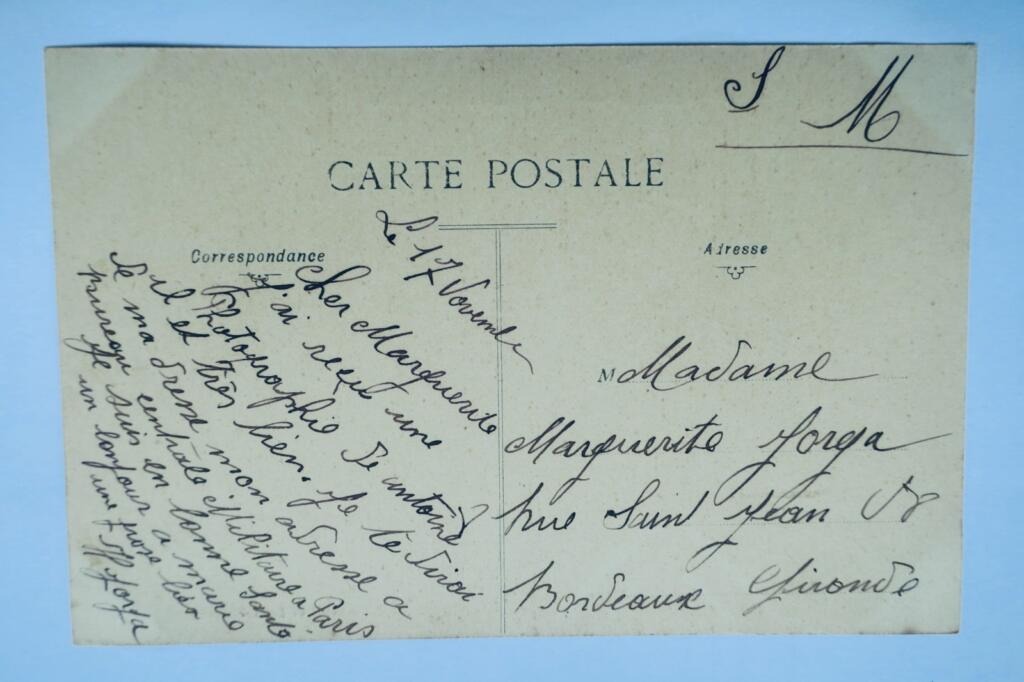 S M
CARTE POSTALE
Correspondance
Le 17 Novembre
Cher Marguerite
J'ai reçu une
Photographie de antoine
il et très bien. Je te dirai
de ma dresse mon adresse a
bureau centrale Militaire a Paris
Je suis en bonne Santé
un bonjour a marie
une
Jorga
Adresse
M Madame
Marguerite Jorga
Rue Saint Jean
Bordeaux Gironde